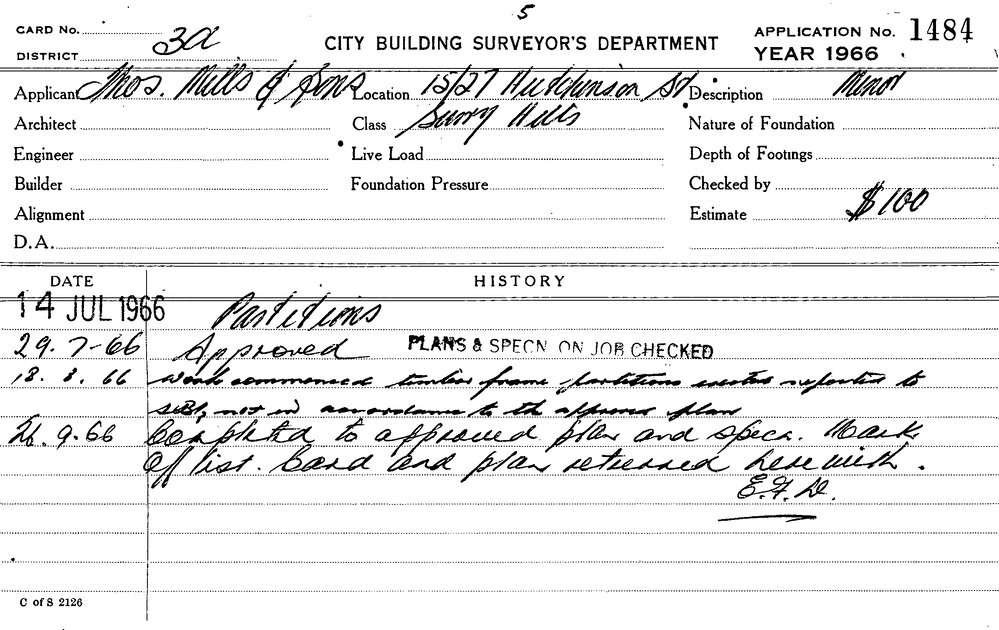 5
CARD No.
DISTRICT 3a
CITY BUILDING SURVEYOR'S DEPARTMENT
APPLICATION No. 1484
YEAR 1966
Applicant Thos. Mills & Sons Location 15/27 Hutchinson St Description Minor
Architect Class Surry Hills Nature of Foundation
Engineer Live Load Depth of Footings
Builder Foundation Pressure Checked by
Alignment Estimate $100
D.A.
DATE HISTORY
14 JUL 1966 Partitions
29.7-66 Approved PLANS & SPECN ON JOB CHECKED
18.8.66 Work commenced timber frame partitions erected reported to
not in accordance to the approved plan
26.9.66 Completed to approved plan and specn. Mark
off list. Card and plan returned herewith.
C of S 2126